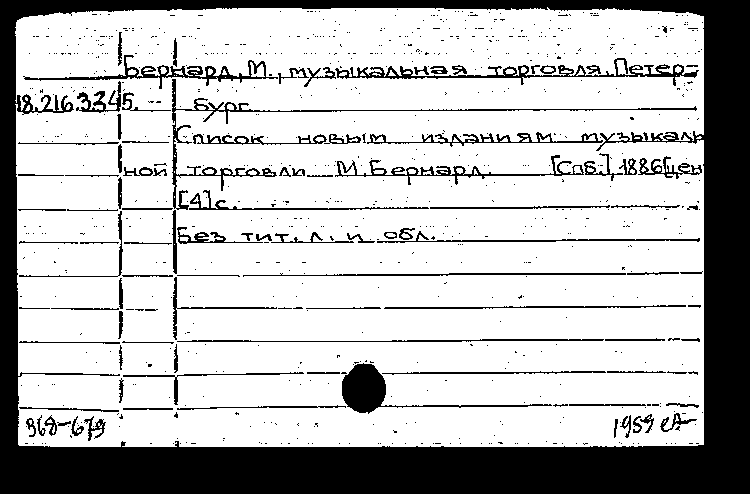 Бернард, М., музыкальная торговля. Петер-
18.216.3345. бург
Список новым изданиям музыкаль
ной торговли М. Бернард. [Спб.], 1886[цен
[4]с.
Без тит. л. и обл.
368-679
1959